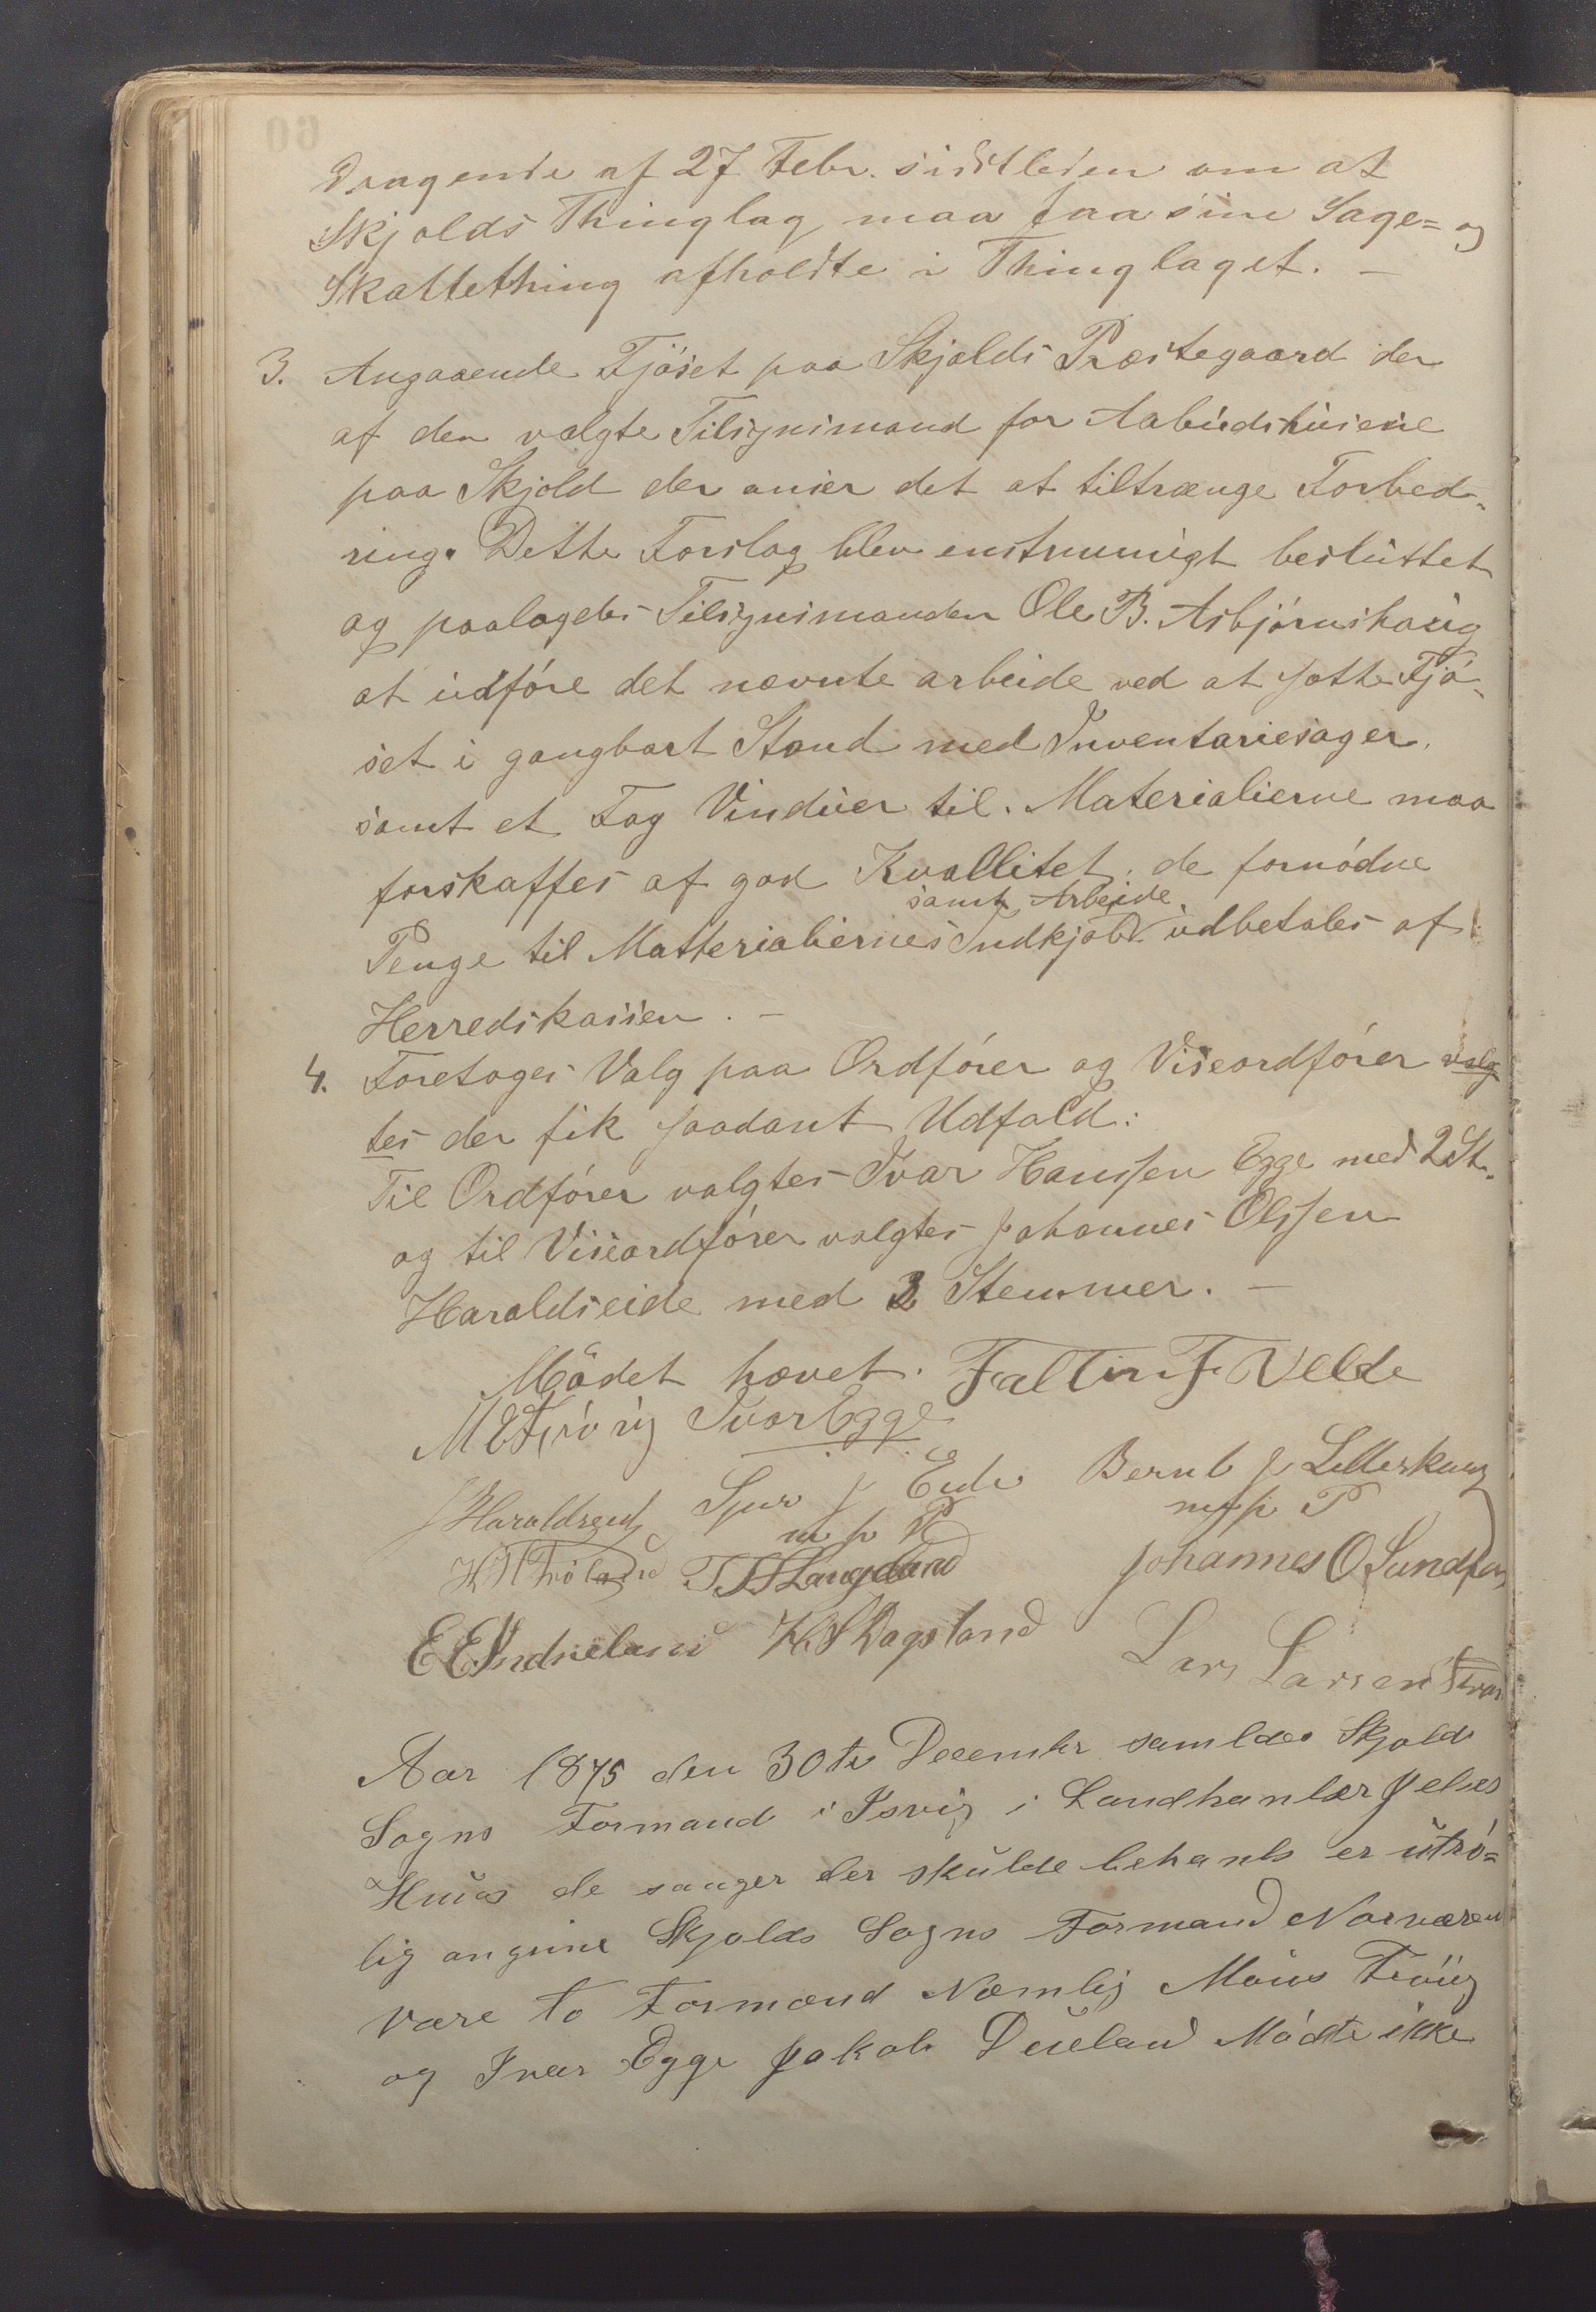 dragende af 27 Febr. sidstleden om at
Skjolds Thinglag maa faa sine Sage= og
Skattething afholdte i Thinglaget. —
3. Angaaende Fjöset paa Skjolds Præstegaard der
af den valgte Tilsynsmand for Aabudshusene
paa Skjold der anser det at tiltrænge Forbed-
ring. Dette Forslag blev enstemmigt besluttet
og paalagdes Tilsynsmanden Ole B. Asbjörnshaug
at udföre det nævnte arbeide ved at sætte Fjö-
set i gangbart Stand med Inventariesager,
samt et Fag Vinduer til. Materialierne maa
forskaffes af god Kvallitet, de fornödne
samt Arbeide
Penge til Matterialiernes Indkjöb udbetales af
Herredskassen. —
4. Foretoges Valg paa Ordförer og Viseordförer valg
tes der fik saadant Udfald:
Til Ordförer valgtes Ivar Hanssen Egge med 2 St.
og til Viseordförer valgtes Johannes Olssen
Haraldseide med 3 Stemmer. —
Mödet hævet. Faltin F Velde
M E Frövig Ivar Egge
J Haraldseid Sjur J Eide Bernt J Lilleskoug
m p P m p P
H H Tröland T T Langeland Johannes O Sundfør
E E Indrieland K S Dagsland
Lars Larsen
Aar 1875 den 30te December samldes Skjold
Sogns Formand i Isvig i Landhanler Jelses
Huus de sanger der skulde behanls er utrö=
lig angine Skjolds Sogns Formand Norværen
vare to Formænd Næmlig Möns Fröiig
og Ivar Egge Jakob Dueland Mödte ikke